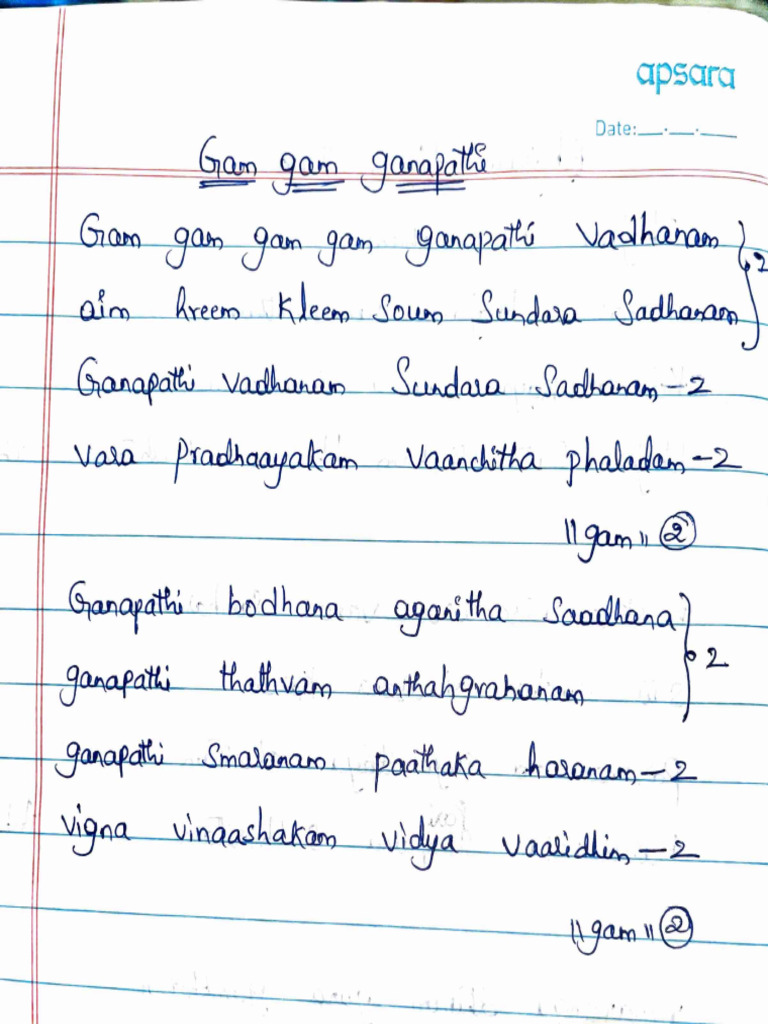 apsara
Date:__.__.__
Gam gam ganapathi
Gam gam gam gam ganapathi vadhanam } 2
aim hreem kleem soum sundara sadhanam
Ganapathi vadhanam sundara sadhanam - 2
vara pradhaayakam vaanchitha phaladam - 2
॥gam॥ ②
Ganapathi bodhana aganitha saadhana
ganapathi thathvam anthahgrahanam } 2
ganapathi smaranam paathaka haranam - 2
vigna vinaashakam vidya vaaridhim - 2
॥gam॥ ②